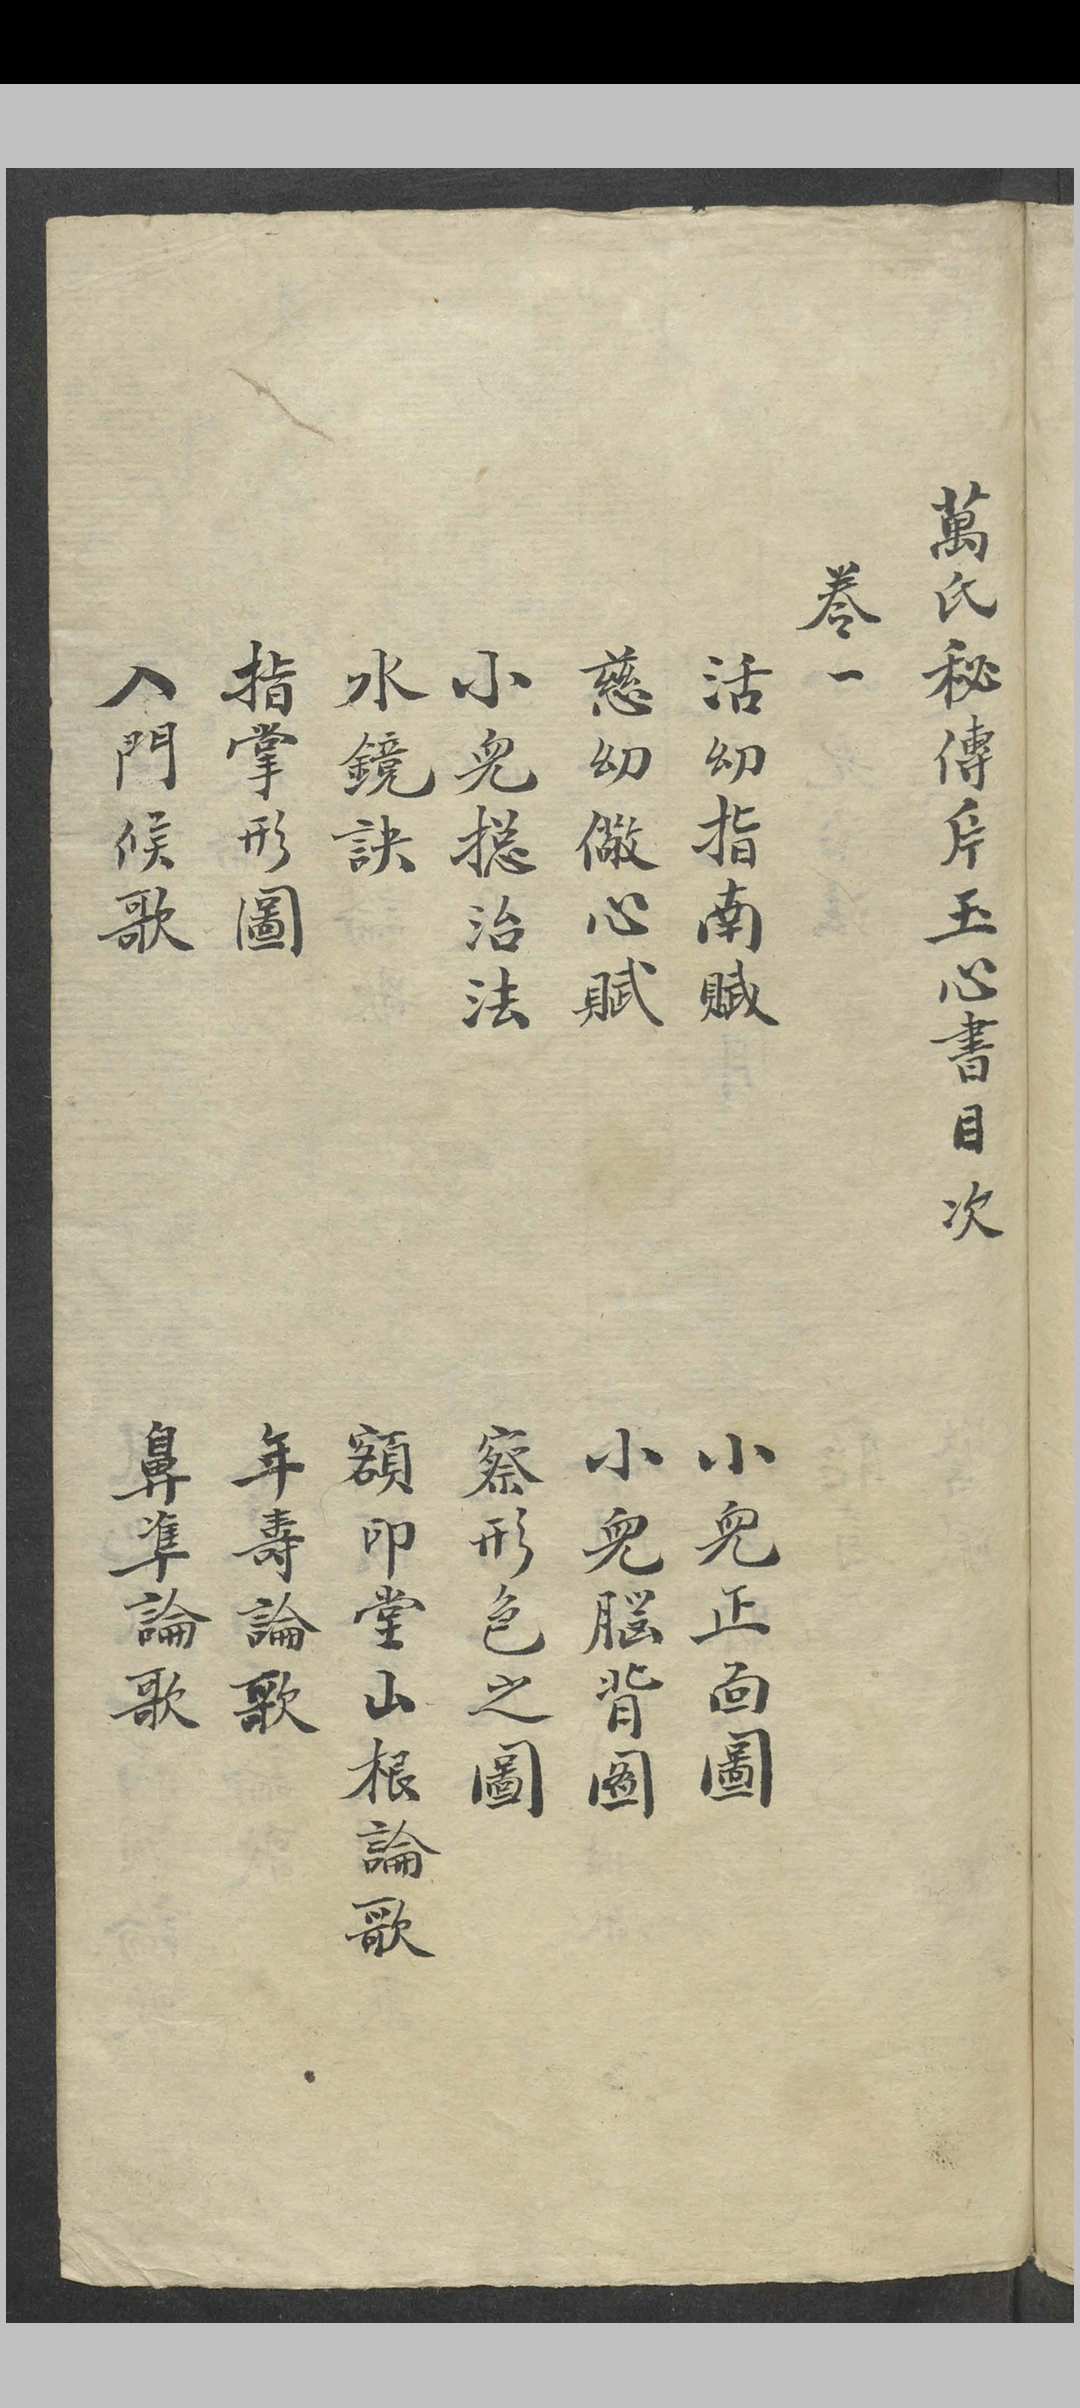 萬氏秘傳片玉心書目次
卷一
活幼指南賦
小兒正面圖
慈幼儆心賦
小兒腦背圖
小兒總治法
察形色之圖
水鏡訣
額印堂山根論歌
指掌形圖
年壽論歌
入門候歌
鼻準論歌